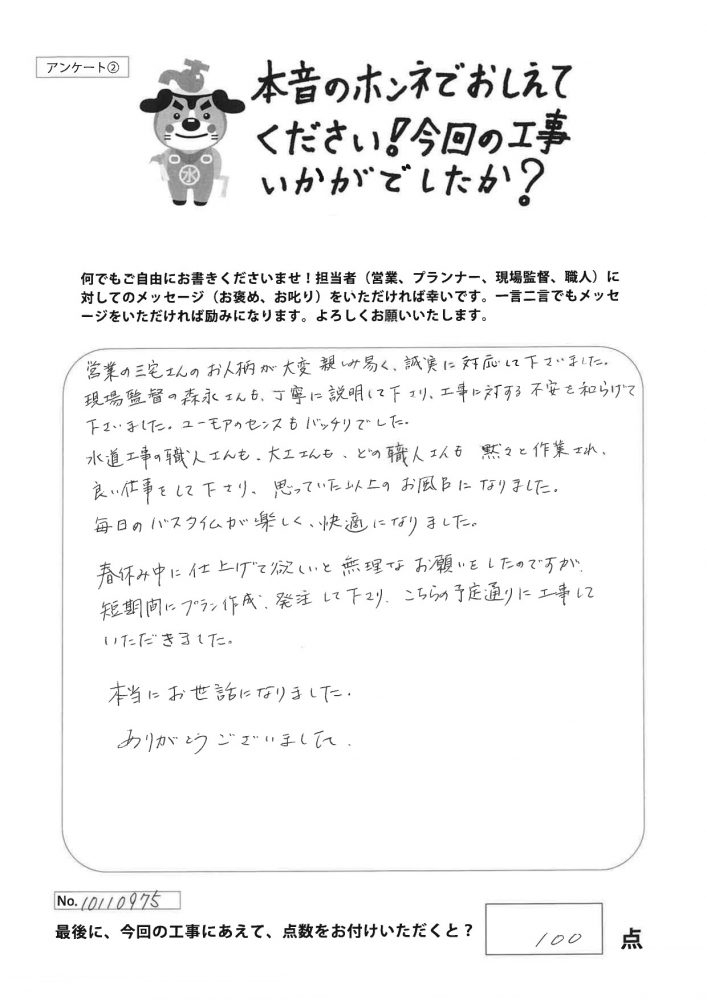 アンケート②
本音のホンネでおしえて
ください!今回の工事
いかがでしたか?
水
何でもご自由にお書きくださいませ!担当者（営業、プランナー、現場監督、職人）に
対してのメッセージ（お褒め、お叱り）をいただければ幸いです。一言二言でもメッセ
ージをいただければ励みになります。よろしくお願いいたします。
営業の三宅さんのお人柄が大変親しみ易く、誠実に対応して下さいました。
現場監督の森永さんも、丁寧に説明して下さり、工事に対する不安を和らげて
下さいました。ユーモアのセンスもバッチリでした。
水道工事の職人さんも、大工さんも、どの職人さんも黙々と作業され、
良い仕事をして下さり、思っていた以上のお風呂になりました。
毎日のバスタイムが楽しく、快適になりました。
春休み中に仕上げて欲しいと無理なお願いをしたのですが、
短期間にプラン作成、発注して下さり、こちらの予定通りに工事して
いただきました。
本当にお世話になりました。
ありがとうございました。
No. 10110975
最後に、今回の工事にあえて、点数をお付けいただくと？ 100 点